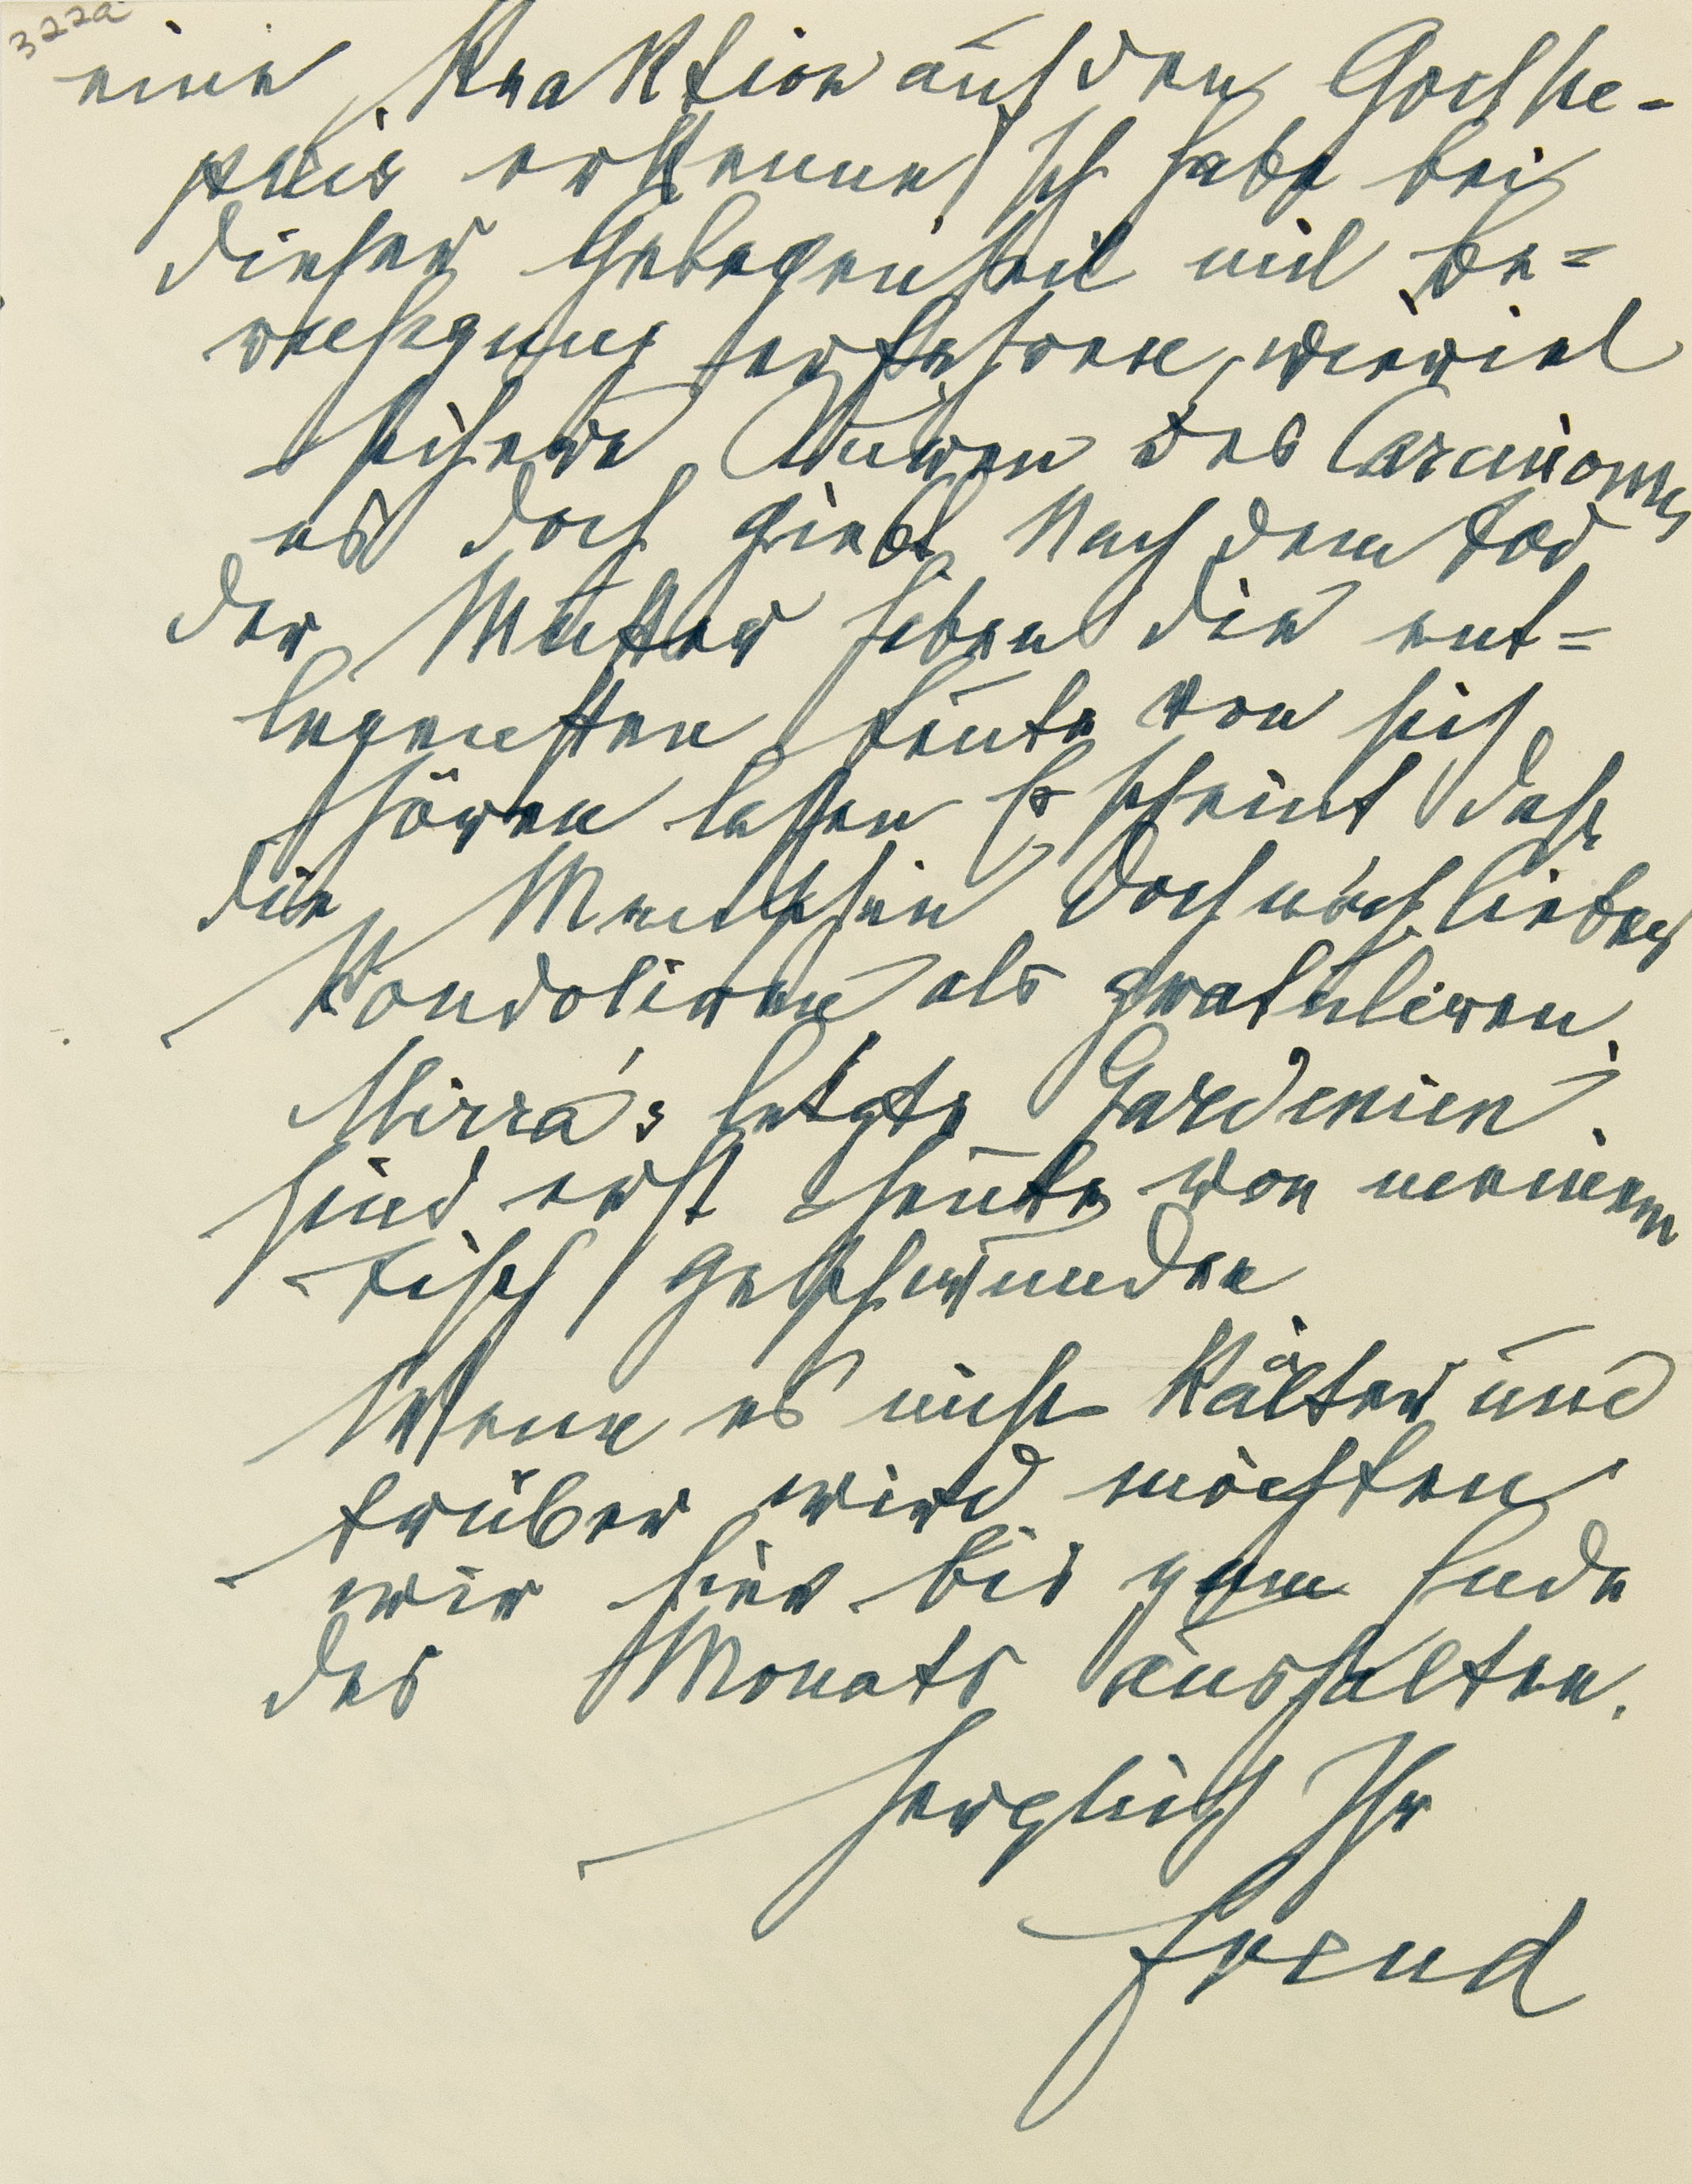 322a
eine Reaktion auf den Goethe-
preis erkenne. Ich habe bei
dieser Gelegenheit mit Be-
erfahren, wieviel
sichere Kuren des Carcinoms
es doch giebt. Nach dem Tod
der Mutter haben die ent-
legensten Leute von sich
hören lassen. Es scheint daß
die Menschen doch noch lieber
kondoliren als gratuliren.
Mirra's letzte Gardenien
sind erst heute von meinem
Tisch geschwunden.
Wenn es nicht kälter und
trüber wird möchten
wir hier bis zum Ende
des Monats aushalten.
Herzlich Ihr
Freud